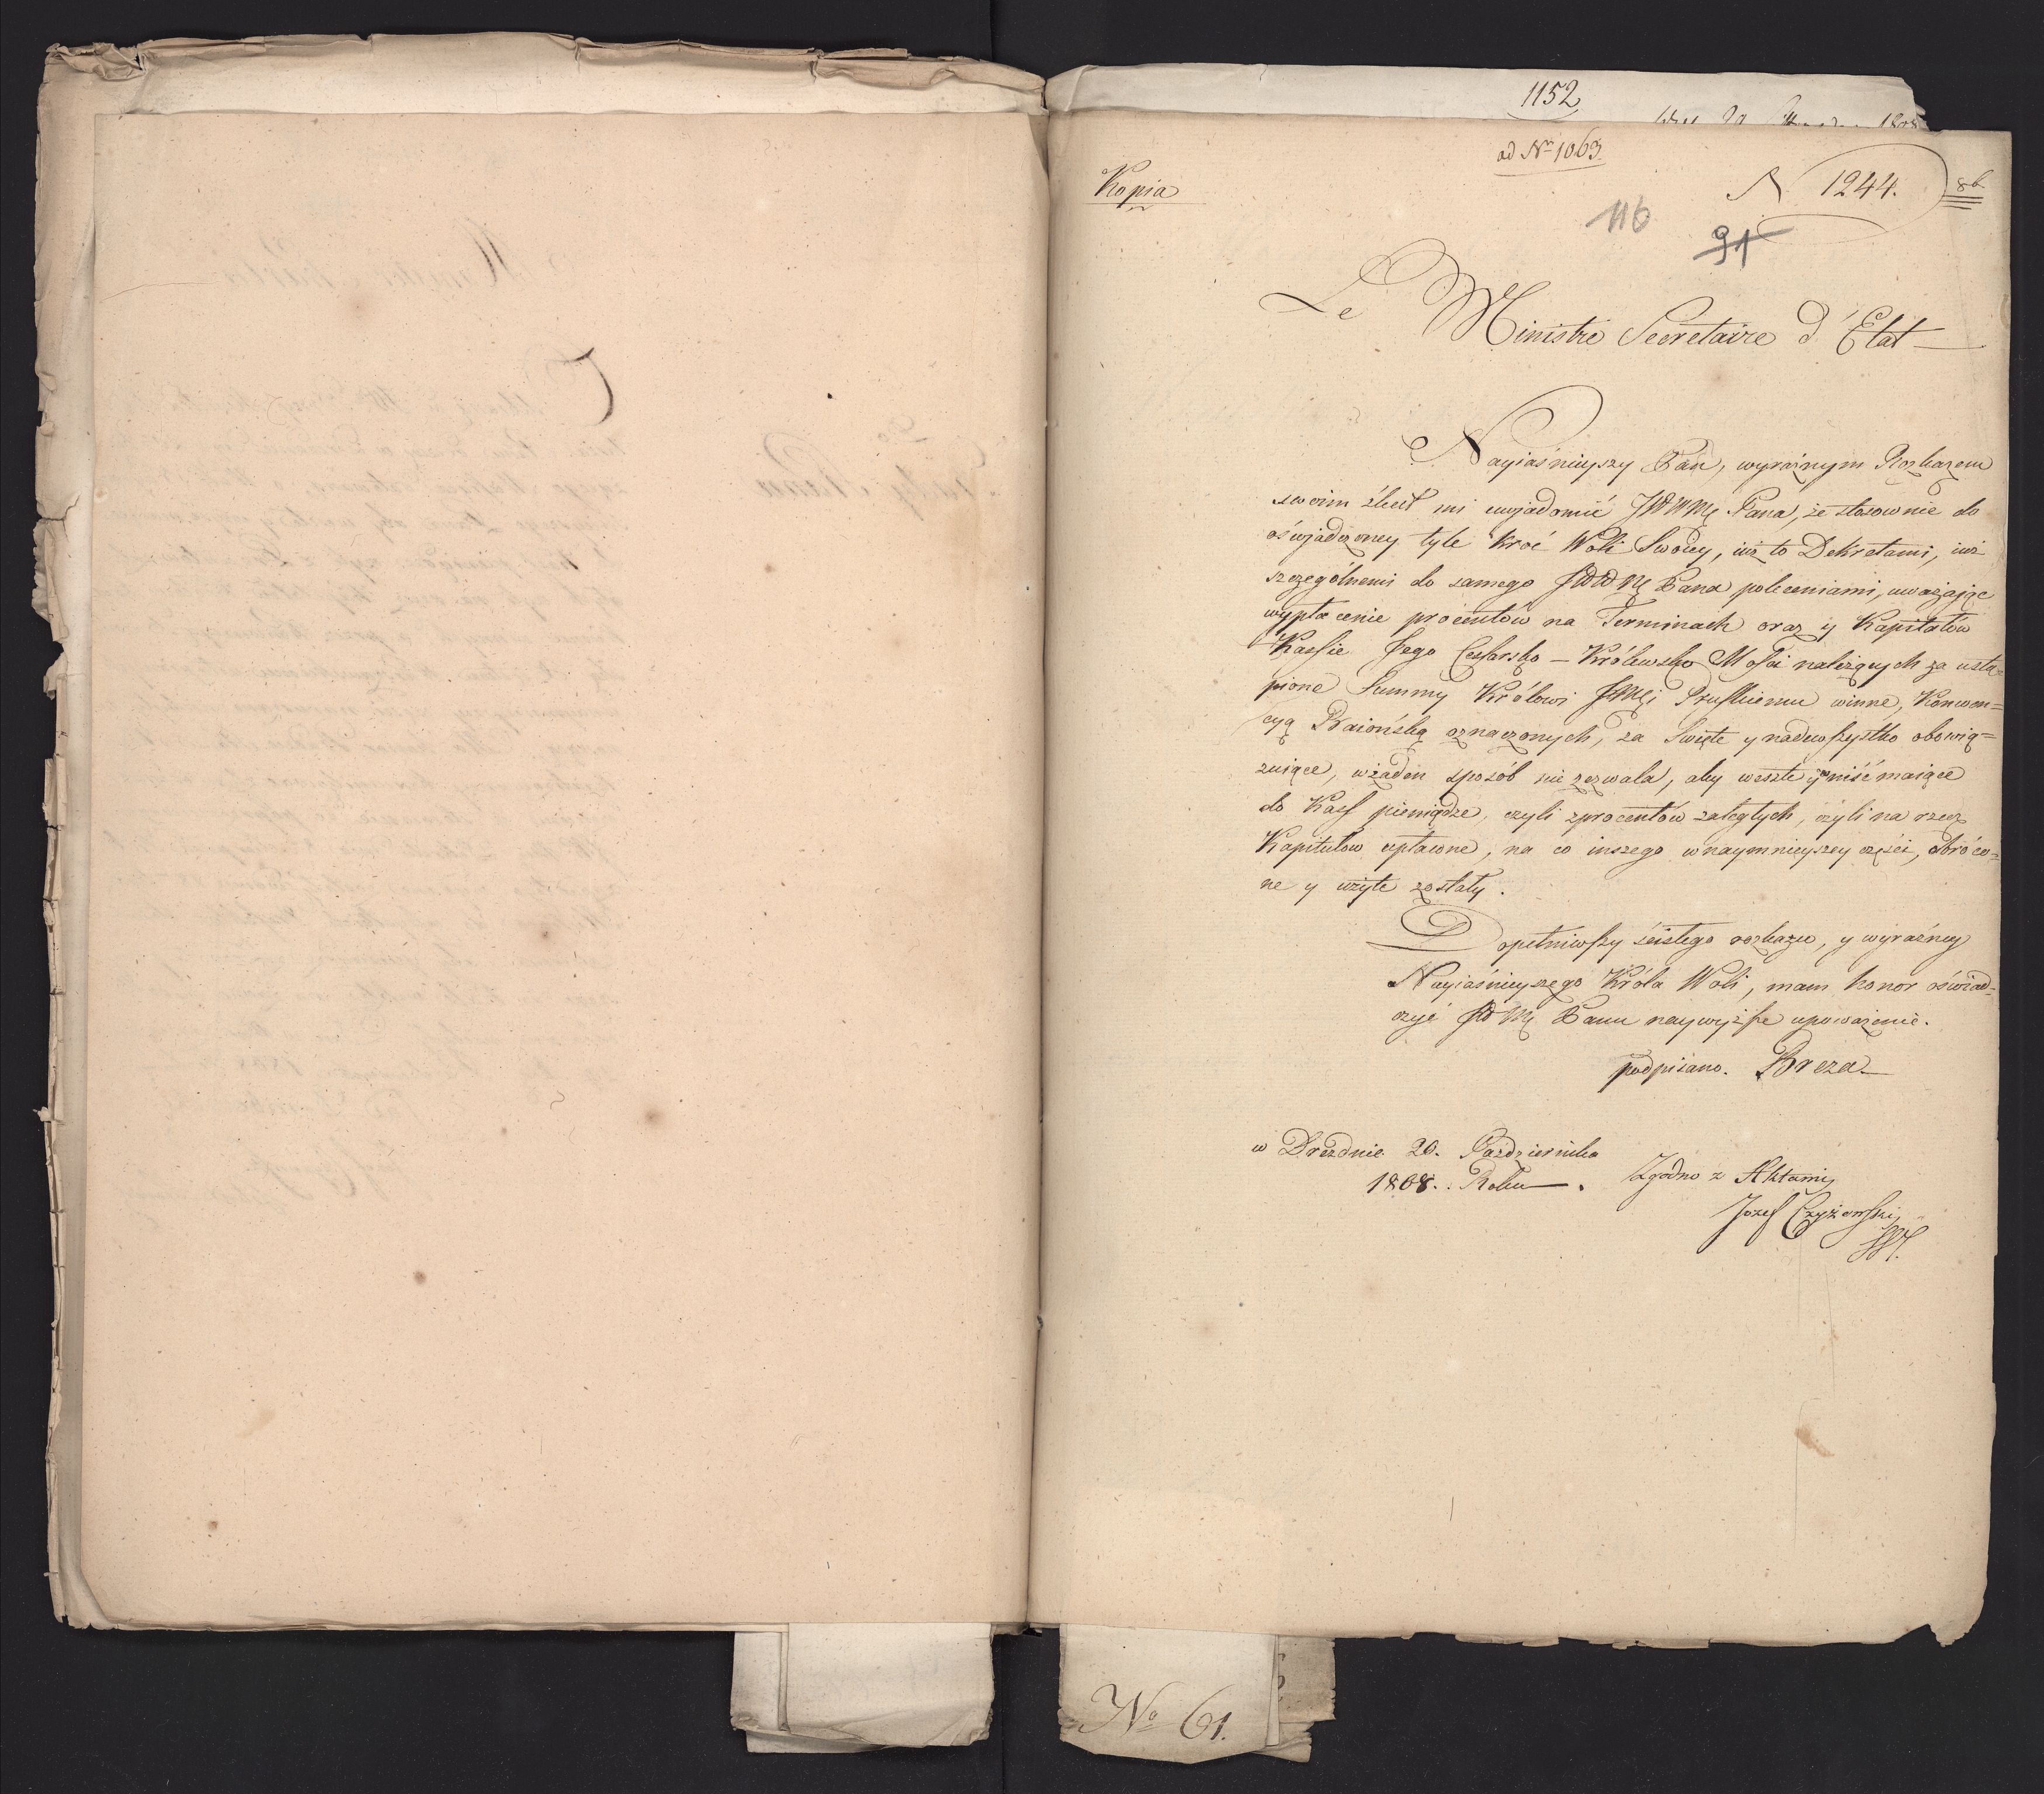 1152
ad Nr 1063.
Kopia
N 1244.
86
116
91
Le Ministre Secretaire d'Etat
Nayiaśnieyszy Pan, wyraźnym Rozkazem
swoim zlecił mi uwjadomić JWWMę Pana, że stosownie do
oświadczoney tyle kroć Woli Swoiey, iuż to Dekretami, iuż
szczególnemi do samego JWWMę Pana poleceniami, uważaiąc
wypłacenie procentów na Terminach oraz y Kapitałów
Kassie Jego Cesarsko-Królewsko Mości należących za ustą=
pione Summy Królowi JMCi Pruskiemu winne, Konwen=
cyą Baiońską oznaczonych, za Święte y nadewszystko obowią=
zuiące, w żaden sposób nie zezwala, aby weszłe y wniść maiące
do Kass pieniądze, czyli z procentów zaległych, czyli na rzecz
Kapitułów vpłacone, na co inszego w naymnieyszey części, obróco=
ne y użyte zostały.
Dopełniwszy ścisłego rozkazu, y wyraźney
Nayiaśnieyszego Króla Woli, mam honor oświad=
czyć JWMę Panu naywyższe upoważenie.
podpisano. Breza
w Dreznie 26. Października
1808. Roku.
Zgodno z Aktami
Jozef Czyżewski
No 61.